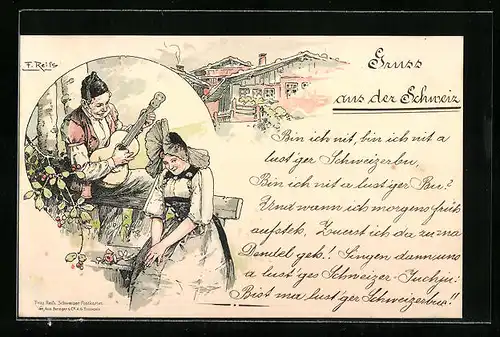 F. Reiss
Gruss
aus der Schweiz
Bin ich nit, bin ich nit a
lust'ger Schweizerbu,
Bin ich nit a lust'ger Bu?
Und wann ich morgens früh
aufsteh, Zuerst ich da zu-na
Dendel geh! Singen dann uns
a lust'ges Schweizer-Juchju:
Bist ma lust'ger Schweizerbua!!
Fritz Reiss Schweizer Postkarten